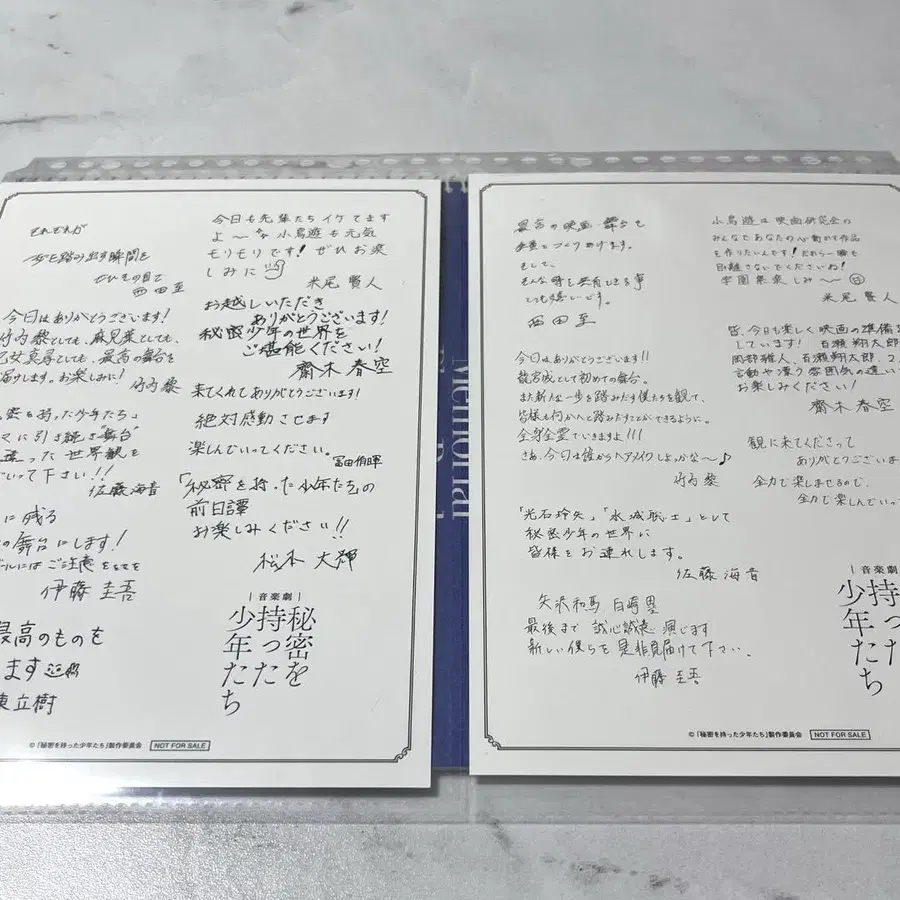 それぞれが
一歩を踏み出す瞬間を
ぜひその目で
西田至
今日はありがとうございます!
竹内黎としても、麻見葉としても、
乙女真尋としても、最高の舞台を
届けします。お楽しみに!
竹内 黎
密を持った少年たち」
に引き続き"舞台"
違った世界観を
でいって下さい!!
佐藤海音
に残る
の舞台にします!
にはご注意を
伊藤圭吾
最高のものを
ます
東立樹
今日も先輩たちイケてます
よ〜な 小鳥遊も元気
モリモリです! ぜひお楽
しみに
米尾 賢人
お越しいただき
ありがとうございます!
秘密少年の世界を
ご堪能ください!
齋木 春空
来てくれてありがとうございます!
絶対感動させます
楽しんでいってください。
冨田侑暉
「秘密を持った少年たち」の
前日譚
お楽しみください!!
松本 大輝
音楽劇
秘密を
持った
少年たち
©「秘密を持った少年たち」製作委員会 NOT FOR SALE
Memorial
最高の映画・舞台を
そして、
そんな時を共有できる事
とても嬉しいです。
西田至
今日はありがとうございます!!
龍宮成として初めての舞台。
また新たな一歩を踏みだす僕たちを観て、
皆様も何かへと踏みだすことができるように。
全身全霊でいきますよ!!!
さぁ、今日は誰からヘアメイクしよっかな〜♪
竹内 黎
「光石玲矢」「水城戦士」として
秘密少年の世界に
皆様をお連れします。
佐藤 海音
矢沢和馬 白崎塁
最後まで 誠心誠意 演じます
新しい僕らを是非見届けて下さい。
伊藤 圭吾
小鳥遊は映画研究会の
みんなであなたの心動かす作品
を作りたいんです! だから一瞬も
目離さないでくださいね!
学園祭楽しみ〜
米尾 賢人
皆、今日も楽しく映画の準備を
しています! 百瀬翔太郎
岡部雅人、百瀬翔太郎、2
言動や漂う雰囲気の違い
お楽しみください!
齋木 春空
観に来てくださって
ありがとうございま
全力で楽しませるので、
全力で楽しんでいって
音楽劇
持った
少年たち
©「秘密を持った少年たち」製作委員会 NOT FOR SALE